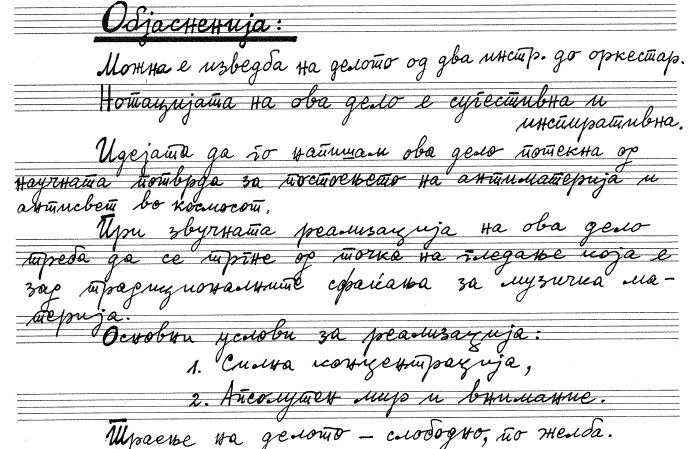 Објасненија:
Можна е изведба на делото од два инстр. до оркестар.
Нотацијата на ова дело е сугестивна и
инспиративна.
Идејата да го напишам ова дело потекна од
научната потврда за постоењето на антиматерија и
антисвет во космосот.
При звучната реализација на ова дело
треба да се тргне од точка на гледање која е
зад традиционалните сфаќања за музичка ма-
терија.
Основни услови за реализација:
1. Силна концентрација,
2. Апсолутен мир и внимание.
Траење на делото – слободно, по желба.